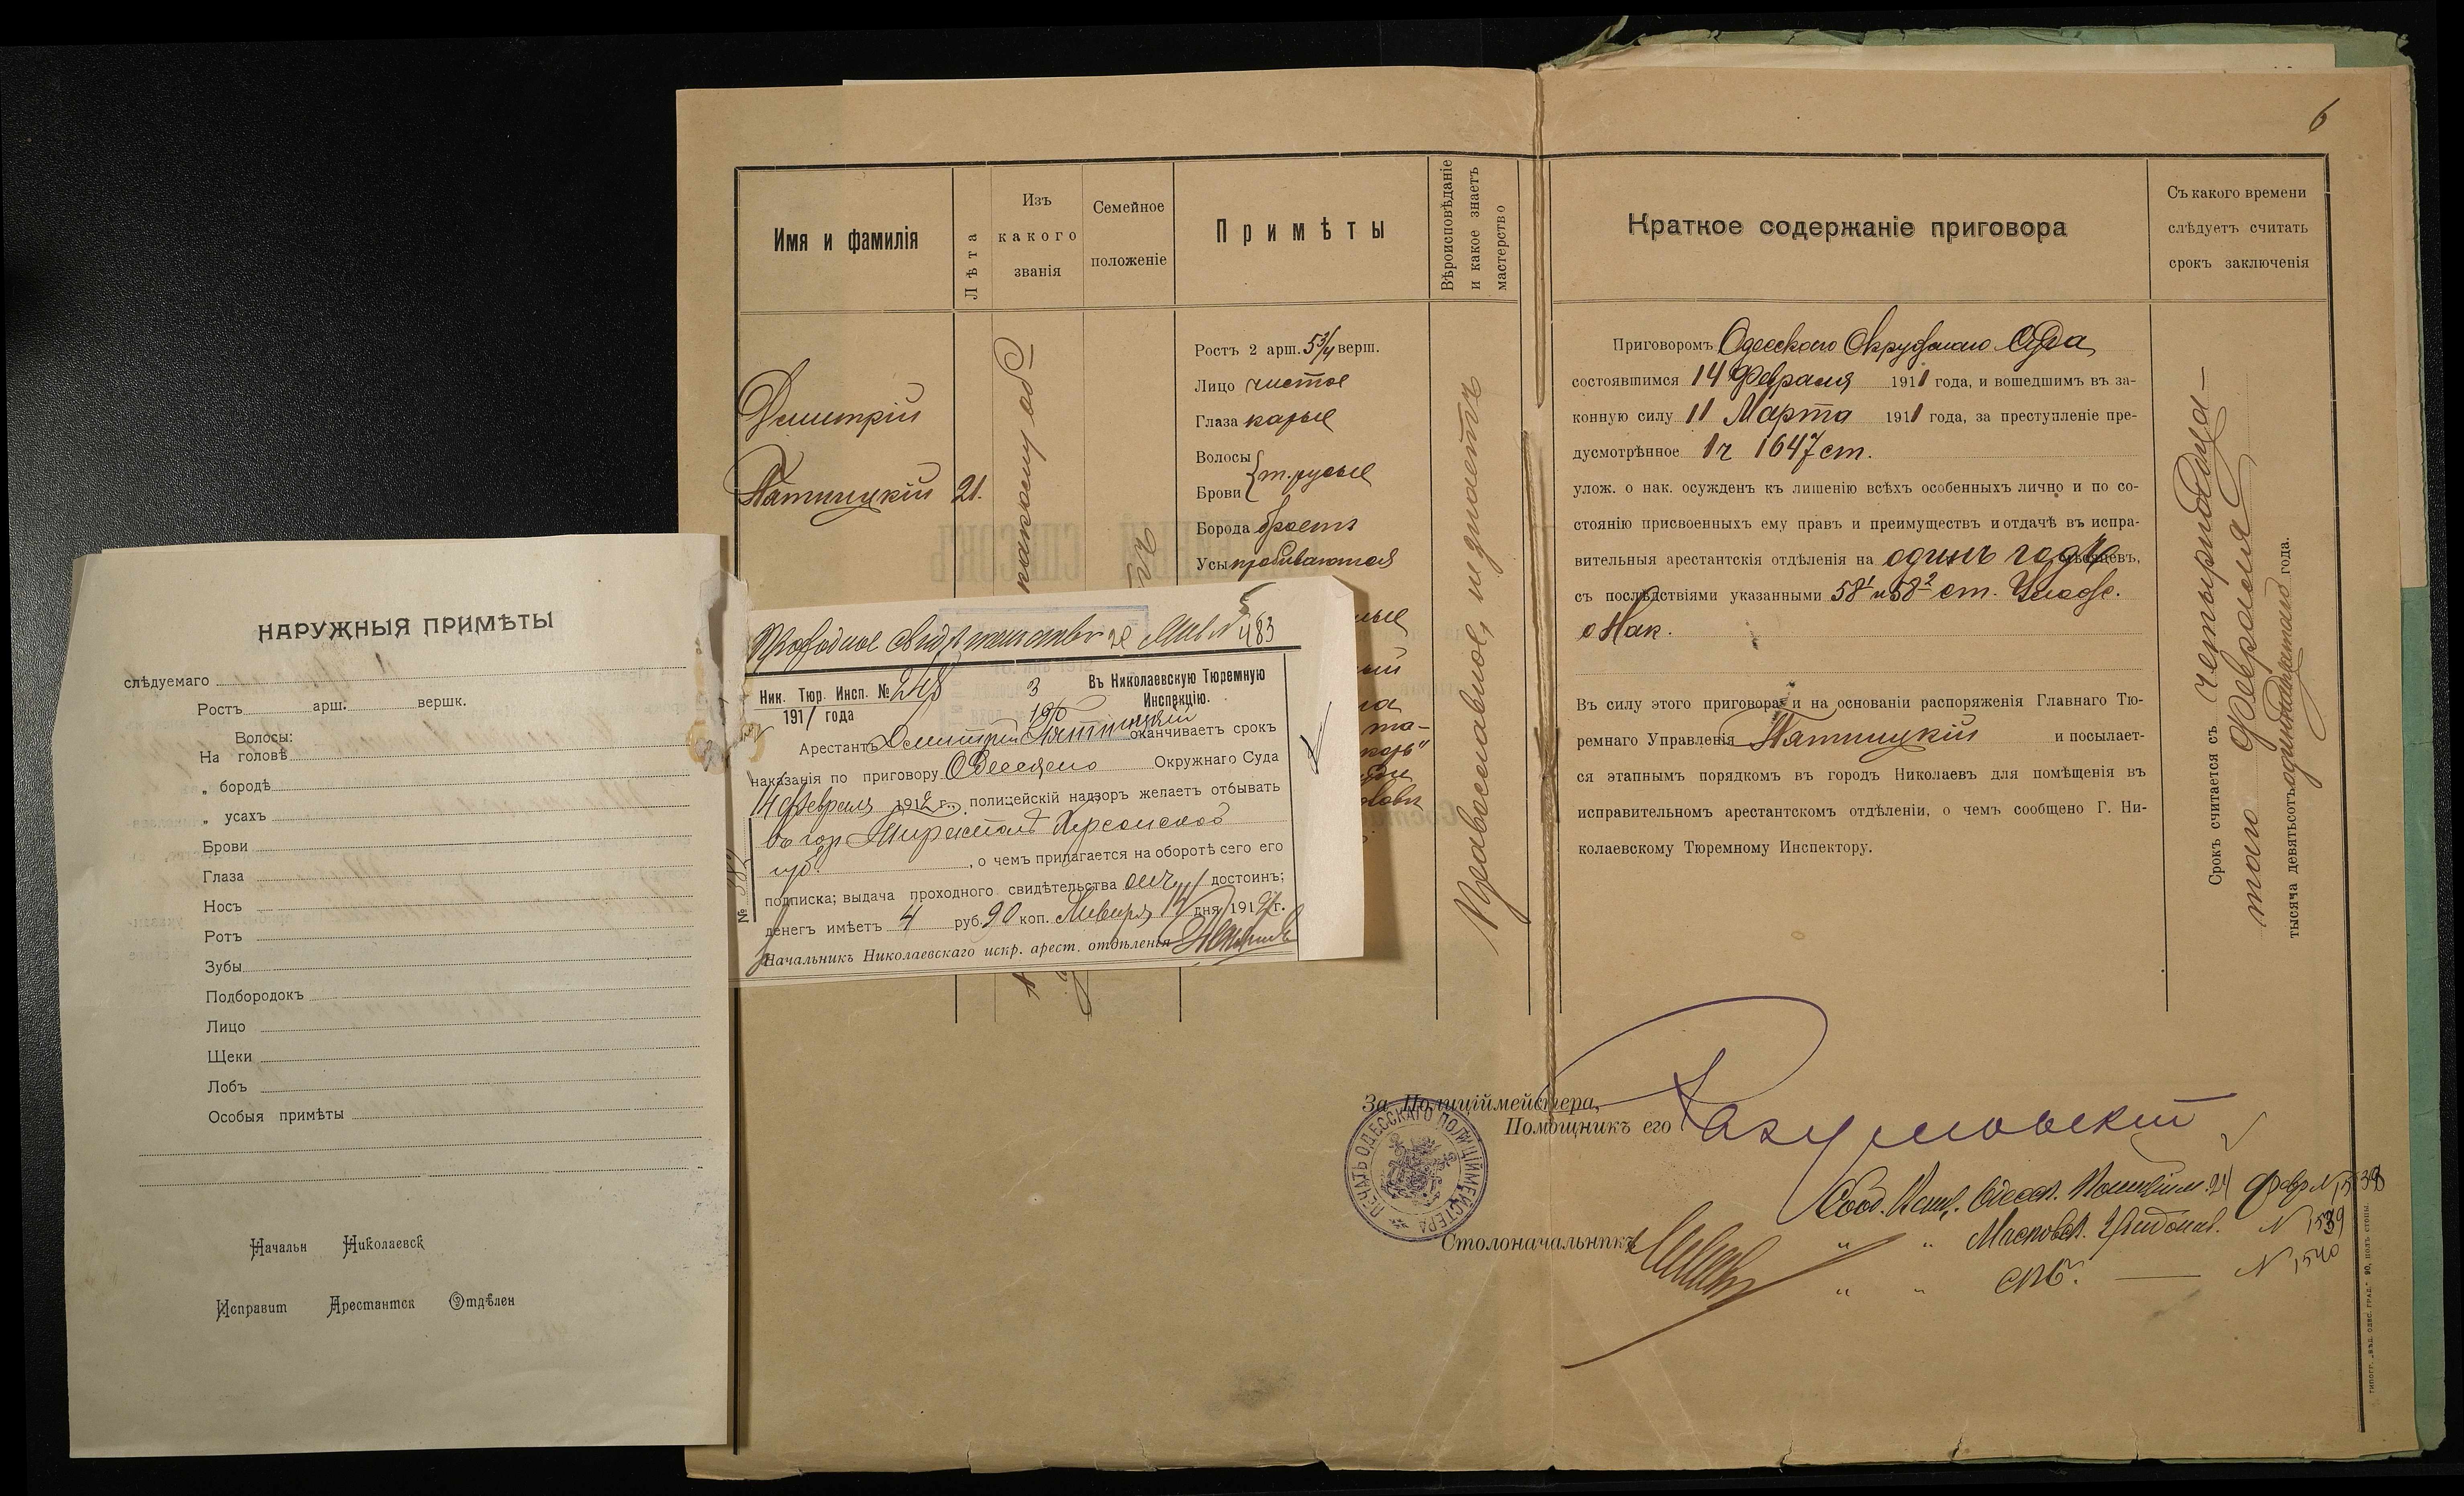 6
Имя и фамилія
Лѣта
Изъ
какого
званія
Семейное
положеніе
Примѣты
Вѣроисповѣданіе
и какое знаетъ
мастерство
Краткое содержаніе приговора
Съ какого времени
слѣдуетъ считать
срокъ заключенія
Дмитрій
Пятницкій
21.
Ростъ 2 арш. 5¾ верш.
Лицо чистое
Глаза карые
Волосы
Брови т. русые
Борода брѣетъ
Усы пробиваются
Православное, не знаетъ
Приговоромъ Одесскаго Окружнаго Суда
состоявшимся 14 Февраля 1911 года, и вошедшимъ въ за-
конную силу 11 Марта 1911 года, за преступленіе пре-
дусмотрѣнное 1 ч 1647 ст.
улож. о нак. осужденъ къ лишенію всѣхъ особенныхъ лично и по со-
стоянію присвоенныхъ ему правъ и преимуществъ и отдачѣ въ испра-
вительныя арестантскія отдѣленія на одинъ годъ мѣсяцевъ,
съ послѣдствіями указанными 58¹ и 58² ст. Улож.
о Нак.
Въ силу этого приговора и на основаніи распоряженія Главнаго Тю-
ремнаго Управленія Пятницкій и посылает-
ся этапнымъ порядкомъ въ городъ Николаевъ для помѣщенія въ
исправительномъ арестантскомъ отдѣленіи, о чемъ сообщено Г. Ни-
колаевскому Тюремному Инспектору.
Срокъ считается съ четырнадца-
таго Февраля
тысяча девятьсотъ одиннадцатаго года.
За Полиціймейстера,
Помощникъ его Разумовскій
ПЕЧАТЬ ОДЕССКАГО ПОЛИЦІЙМЕЙСТЕРА
Столоначальникъ
Сооб. Одесск. Полиційм. 24 Февр N 1538
" " Московск. Градонач. N 1539
" " СПб. — N 1540
типогр. „вѣд. одес. град."
Проходное свидѣтельство за N 483
Ник. Тюр. Инсп. № 248
1911 года
3
Въ Николаевскую Тюремную
Инспекцію.
Арестантъ Дмитрій Пятницкій оканчиваетъ срокъ
наказанія по приговору Одесскаго Окружнаго Суда
14 февраля 1912 г., полицейскій надзоръ желаетъ отбывать
въ гор Тирасполѣ Херсонской
губ., о чемъ прилагается на оборотѣ сего его
подписка; выдача проходного свидѣтельства достоинъ;
денегъ имѣетъ 4 руб. 90 коп. Января 14 дня 1912 г.
Начальникъ Николаевскаго испр. арест. отдѣленія
№
НАРУЖНЫЯ ПРИМѢТЫ
слѣдуемаго
Ростъ арш. вершк.
Волосы:
На головѣ
„ бородѣ
„ усахъ
Брови
Глаза
Носъ
Ротъ
Зубы
Подбородокъ
Лицо
Щеки
Лобъ
Особыя примѣты
Начальн Николаевск
Исправит Арестантск Отдѣлен